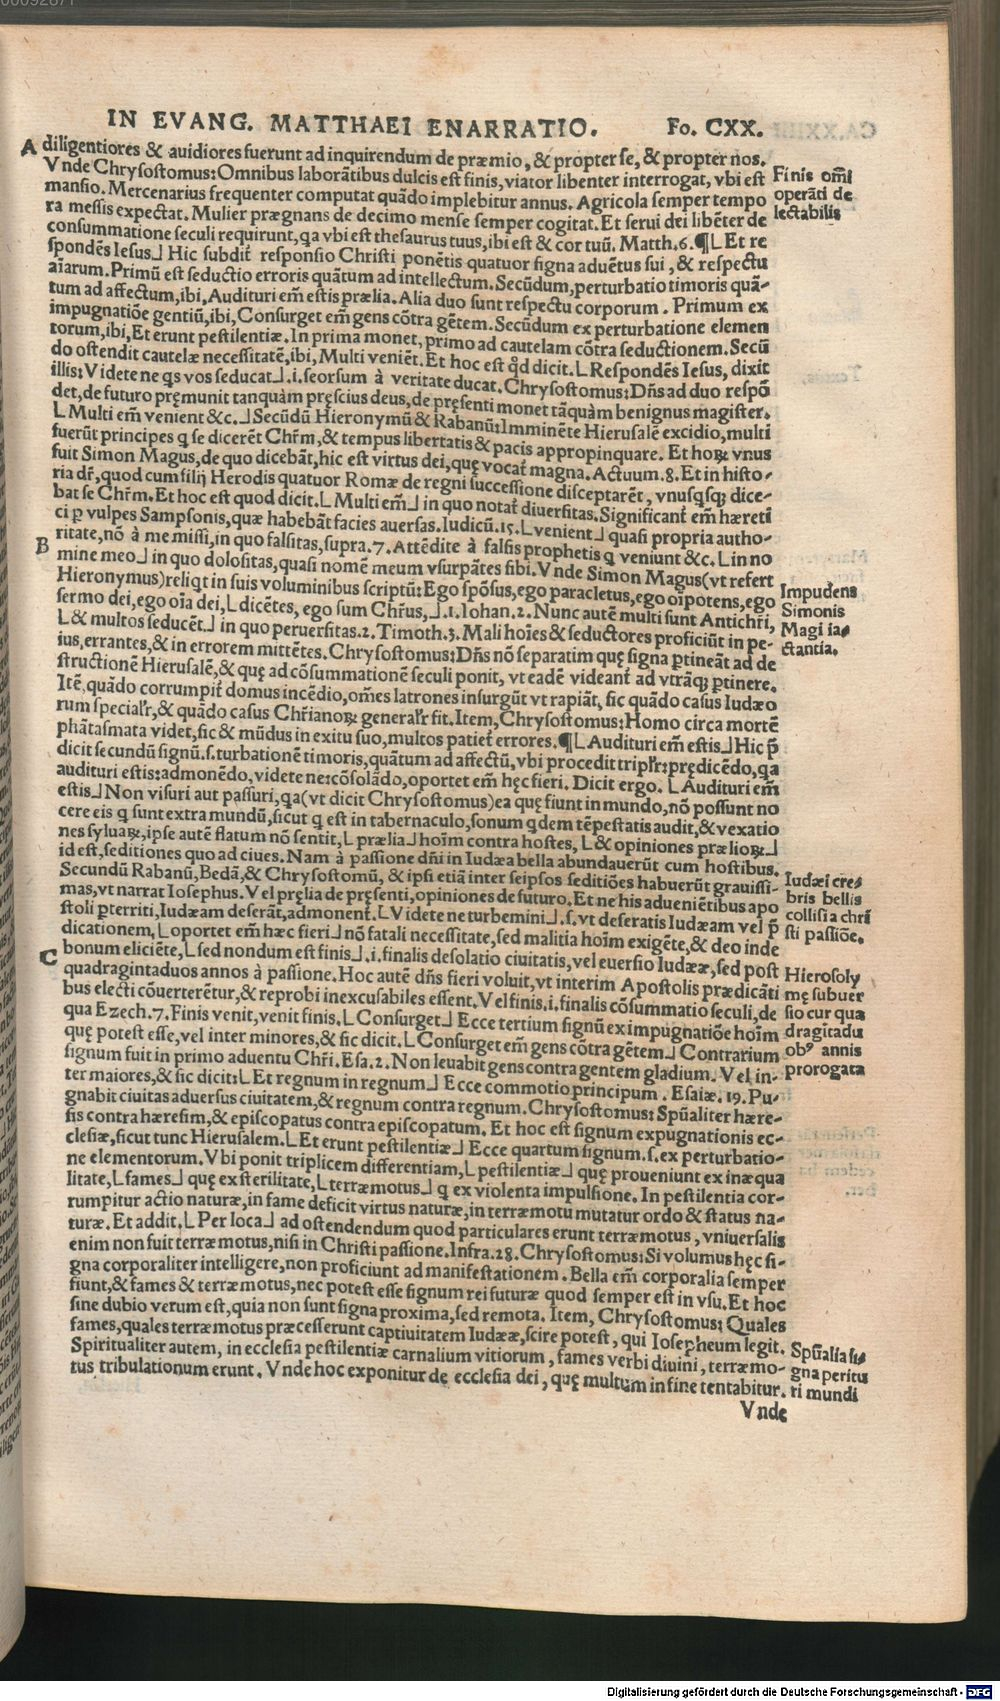 IN EVANG. MATTHAEI ENARRATIO. Fo. CXX.
A diligentiores & auidiores fuerunt ad inquirendum de præmio, & propter se, & propter nos.
Vnde Chrysostomus: Omnibus laborãtibus dulcis est finis, viator libenter interrogat, vbi est
mansio. Mercenarius frequenter computat quãdo implebitur annus. Agricola semper tempo
ra messis expectat. Mulier prægnans de decimo mense semper cogitat. Et serui dei libẽter de
consummatione seculi requirunt, qa vbi est thesaurus tuus, ibi est & cor tuũ. Matth. 6. ¶ L Et re
spondẽs Iesus.⅃ Hic subdit̃ responsio Christi ponẽtis quatuor signa aduẽtus sui, & respectu
aĩarum. Primũ est seductio erroris quãtum ad intellectum. Secũdum, perturbatio timoris quã-
tum ad affectum, ibi, Audituri em̃ estis prælia. Alia duo sunt respectu corporum. Primum ex
impugnatiõe gentiũ, ibi, Consurget em̃ gens cõtra gẽtem. Secũdum ex perturbatione elemen
torum, ibi, Et erunt pestilentiæ. In prima monet, primo ad cautelam cõtra seductionem. Secũ
do ostendit cautelæ necessitatẽ, ibi, Multi veniẽt. Et hoc est qd̃ dicit. L Respondẽs Iesus, dixit
illis: Videte ne qs vos seducat⅃ .i. seorsum à veritate ducat. Chrysostomus: Dñs ad duo respõ
det, de futuro pręmunit tanquàm pręscius deus, de pręsenti monet tãquàm benignus magister.
L Multi em̃ venient &c.⅃ Secũdũ Hieronymũ & Rabanũ: Imminẽte Hierusalẽ excidio, multi
fuerũt principes q se dicerẽt Chr̃m, & tempus libertatis & pacis appropinquare. Et hoꝝ vnus
fuit Simon Magus, de quo dicebãt, hic est virtus dei, quę vocat̃ magna. Actuum. 8. Et in histo-
ria dr̃, quod cum filij Herodis quatuor Romæ de regni successione disceptarẽt, vnusqsqꝫ dice-
bat se Chr̃m. Et hoc est quod dicit. L Multi em̃⅃ in quo notat̃ diuersitas. Significant̃ em̃ hæreti
ci ꝑ vulpes Sampsonis, quæ habebãt facies auersas. Iudicũ. 15. L venient⅃ quasi propria autho-
ritate, nõ à me missi, in quo falsitas, supra. 7. Attẽdite à falsis prophetis q veniunt &c. L in no
B mine meo⅃ in quo dolositas, quasi nomẽ meum vsurpãtes sibi. Vnde Simon Magus (vt refert
Hieronymus) reliqt in suis voluminibus scriptũ: Ego spõsus, ego paracletus, ego oĩpotens, ego
sermo dei, ego oĩa dei, L dicẽtes, ego sum Chr̃us,⅃ .1. Iohan. 2. Nunc autẽ multi sunt Antichr̃i,
L & multos seducẽt.⅃ in quo peruersitas. 2. Timoth. 3. Mali hoĩes & seductores proficiũt in pe-
ius, errantes, & in errorem mittẽtes. Chrysostomus: Dñs nõ separatim quę signa ꝑtineãt ad de
structionẽ Hierusalẽ, & quę ad cõsummationẽ seculi ponit, vt eadẽ videant̃ ad vtrãqꝫ ꝑtinere.
Itẽ, quãdo corrumpit̃ domus incẽdio, om̃es latrones insurgũt vt rapiãt, sic quãdo casus Iudæo
rum special'r, & quãdo casus Chr̃ianoꝝ general'r fit. Item, Chrysostomus: Homo circa mortẽ
phãtasmata videt, sic & mũdus in exitu suo, multos patiet̃ errores. ¶ L Audituri em̃ estis⅃ Hic p̃
dicit secundũ signũ. s. turbationẽ timoris, quãtum ad affectũ, vbi procedit tripl'r: prędicẽdo, qa
audituri estis: admonẽdo, videte ne: cõsolãdo, oportet em̃ hęc fieri. Dicit ergo. L Audituri em̃
estis⅃ Non visuri aut passuri, qa (vt dicit Chrysostomus) ea quę fiunt in mundo, nõ possunt no
cere eis q sunt extra mundũ, sicut q est in tabernaculo, sonum qdem tẽpestatis audit, & vexatio
nes syluaꝝ, ipse autẽ flatum nõ sentit, L prælia⅃ hoĩm contra hostes, L & opiniones prælioꝝ⅃
id est, seditiones quo ad ciues. Nam à passione dñi in Iudæa bella abundauerũt cum hostibus.
Secundũ Rabanũ, Bedã, & Chrysostomũ, & ipsi etiã inter seipsos seditiões habuerũt grauissi-
mas, vt narrat Iosephus. Vel prę̨lia de pręsenti, opiniones de futuro. Et ne his adueniẽtibus apo
stoli ꝑterriti, Iudæam deserãt, admonent̃. L Videte ne turbemini⅃ .s. vt deseratis Iudæam vel p̃
dicationem, L oportet em̃ hæc fieri⅃ nõ fatali necessitate, sed malitia hoĩm exigẽte, & deo inde
C bonum eliciẽte, L sed nondum est finis⅃ .i. finalis desolatio ciuitatis, vel euersio Iudææ, sed post
quadragintaduos annos à passione. Hoc autẽ dñs fieri voluit, vt interim Apostolis prædicãti
bus electi cõuerterẽtur, & reprobi inexcusabiles essent. Vel finis .i. finalis cõsummatio seculi, de
qua Ezech. 7. Finis venit, venit finis. L Consurget⅃ Ecce tertium signũ ex impugnatiõe hoĩm
quę potest esse, vel inter minores, & sic dicit. L Consurget em̃ gens cõtra gẽtem⅃ Contrarium
signum fuit in primo aduentu Chr̃i. Esa. 2. Non leuabit gens contra gentem gladium. Vel in-
ter maiores, & sic dicit: L Et regnum in regnum⅃ Ecce commotio principum. Esaiæ. 19. Pu-
gnabit ciuitas aduersus ciuitatem, & regnum contra regnum. Chrysostomus: Spũaliter hære-
sis contra hæresim, & episcopatus contra episcopatum. Et hoc est signum expugnationis ec-
clesiæ, sicut tunc Hierusalem. L Et erunt pestilentiæ⅃ Ecce quartum signum. s. ex perturbatio-
ne elementorum. Vbi ponit triplicem differentiam, L pestilentiæ⅃ quę proueniunt ex inæqua
litate, L fames⅃ quę ex sterilitate, L terræmotus⅃ q ex violenta impulsione. In pestilentia cor-
rumpitur actio naturæ, in fame deficit virtus naturæ, in terræmotu mutatur ordo & status na-
turæ. Et addit. L Per loca⅃ ad ostendendum quod particulares erunt terræmotus, vniuersalis
enim non fuit terræmotus, nisi in Christi passione. Infra. 28. Chrysostomus: Si volumus hęc si-
gna corporaliter intelligere, non proficiunt ad manifestationem. Bella em̃ corporalia semper
fiunt, & fames & terræmotus, nec potest esse signum rei futuræ quod semper est in vsu. Et hoc
sine dubio verum est, quia non sunt signa proxima, sed remota. Item, Chrysostomus: Quales
fames, quales terræmotus præcesserunt captiuitatem Iudææ, scire potest, qui Iosepheum legit.
Spiritualiter autem, in ecclesia pestilentiæ carnalium vitiorum, fames verbi diuini, terræmo-
tus tribulationum erunt. Vnde hoc exponitur de ecclesia dei, quę multum in fine tentabitur.
Vnde
Finis om̃i
operãti de
lectabilis
Impudens
Simonis
Magi ia-
ctantia.
Iudæi cre-
bris bellis
collisi a chr̃i
sti passiõe.
Hierosoly
mę subuer
sio cur qua
dragitadu
obꝰ annis
prorogata
Spũalia si-
gna peritu
ri mundi
Digitalisierung gefördert durch die Deutsche Forschungsgemeinschaft - DFG